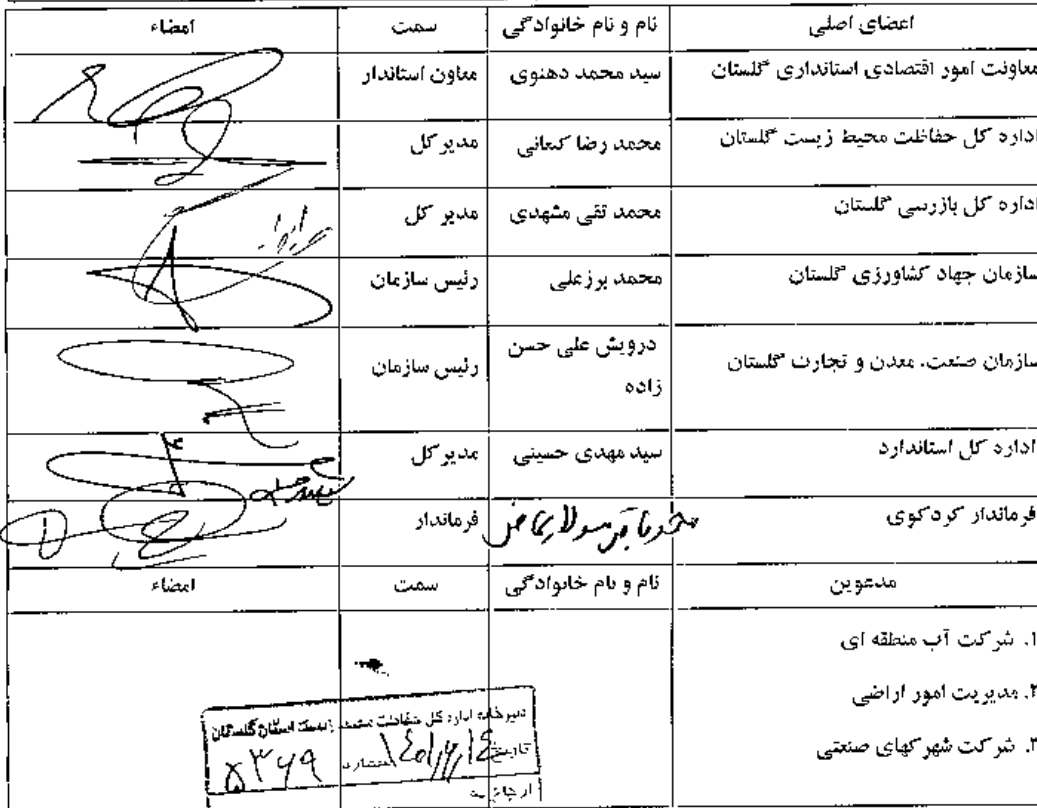 اعضای اصلی نام و نام خانوادگی سمت امضاء
معاونت امور اقتصادی استانداری گلستان سید محمد دهنوی معاون استاندار
اداره کل حفاظت محیط زیست گلستان محمد رضا کنعانی مدیر کل
اداره کل بازرسی گلستان محمد تقی مشهدی مدیر کل
سازمان جهاد کشاورزی گلستان محمد برزعلی رئیس سازمان
سازمان صنعت، معدن و تجارت گلستان درویش علی حسن رئیس سازمان
زاده
اداره کل استاندارد سید مهدی حسینی مدیر کل
فرماندار کردکوی محمد باقر فرماندار
مدعوین نام و نام خانوادگی سمت امضاء
۱. شرکت آب منطقه ای
۲. مدیریت امور اراضی
۳. شرکت شهرکهای صنعتی
دبیرخانه اداره کل حفاظت محیط زیست استان گلستان
تاریخ شماره ۵۳۶۹